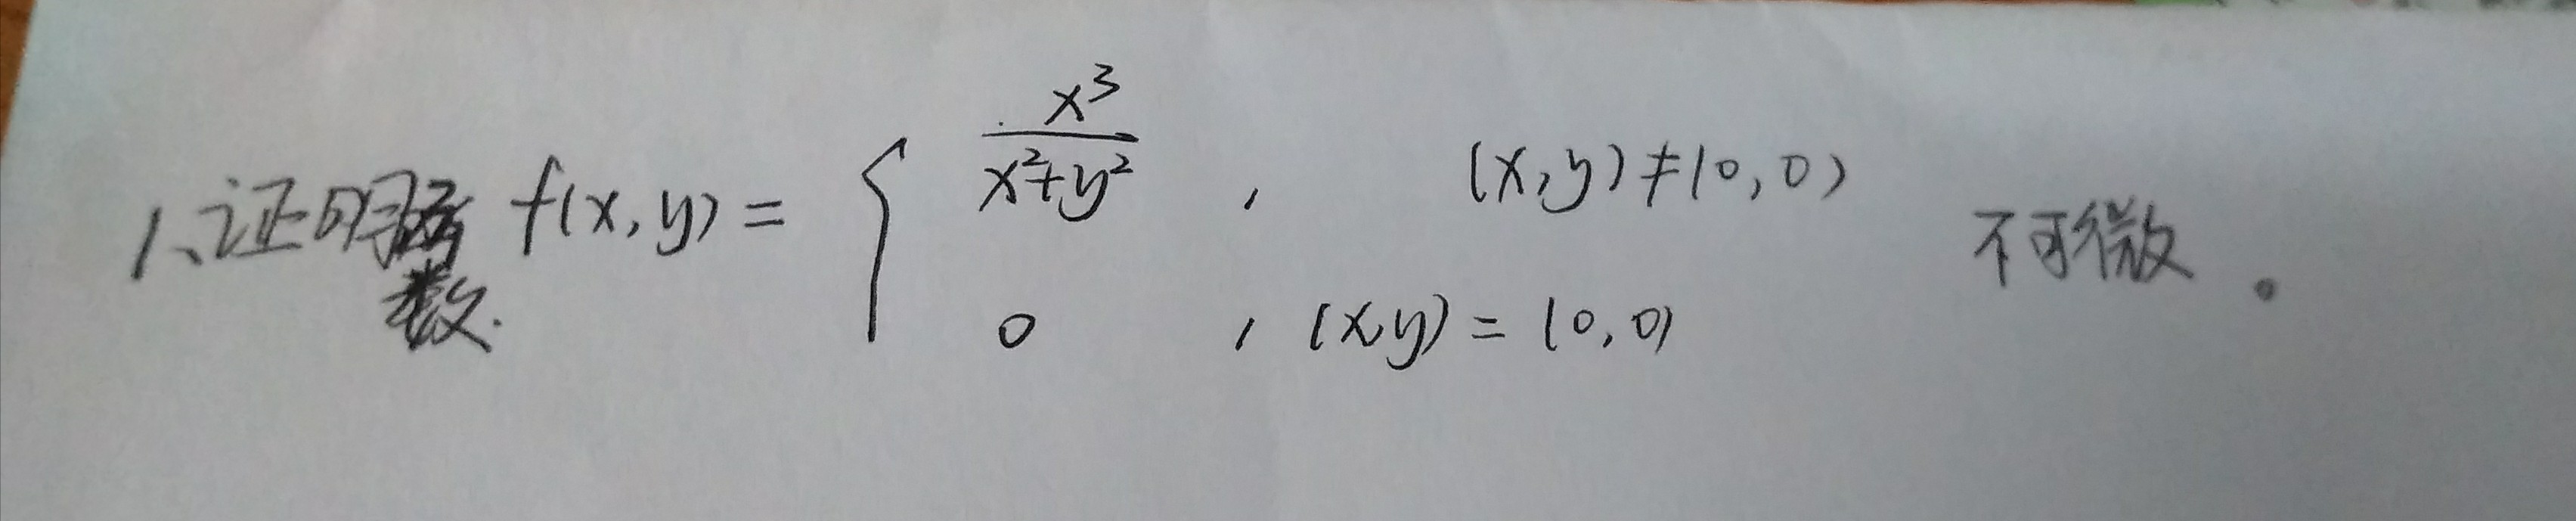 1、证明函数 f(x,y) = { x³/(x²+y²) , (x,y)≠(0,0)
0 , (x,y) = (0,0)
不可微。